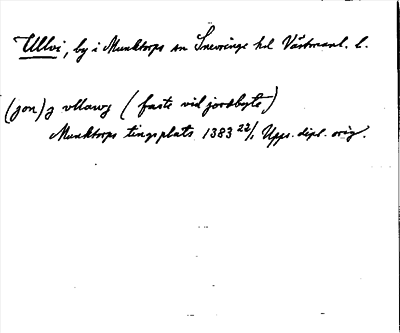 Ullvi, by i Munktorps sn Snevringe hd Västmanl. l.
(jon) j vllawj (faste vid jordbyte)
Munktorps tingsplats 1383 22/1 Upps. dipl. orig.